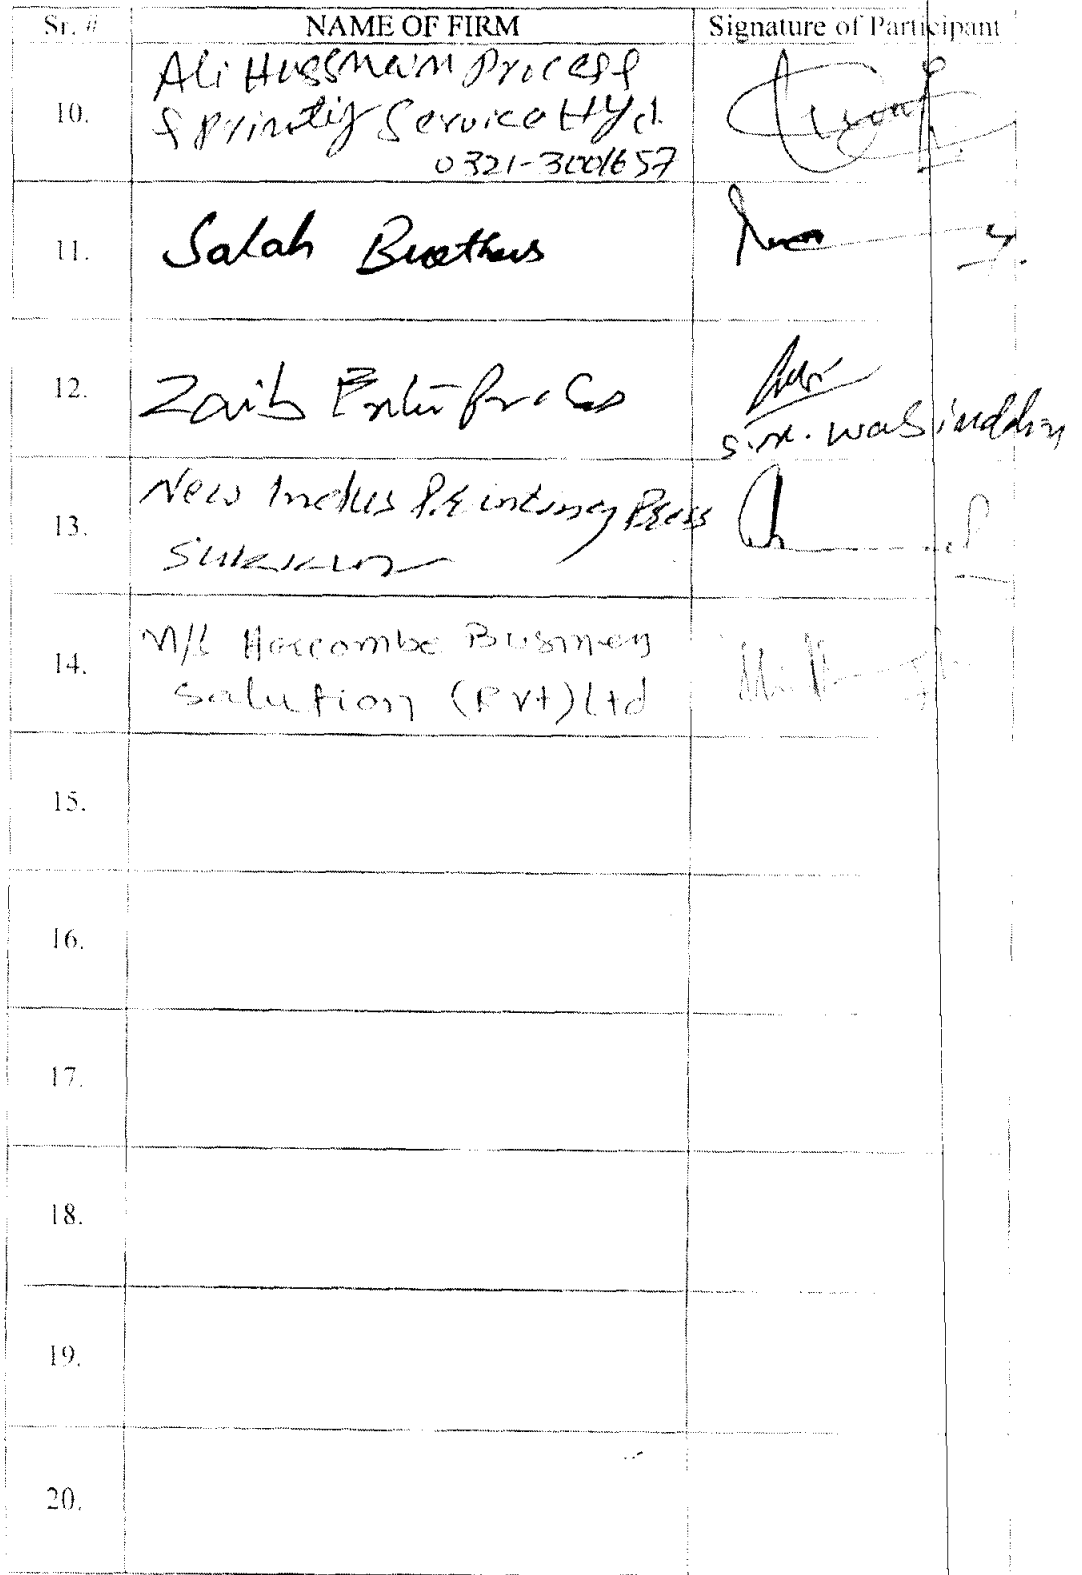 Sr. # NAME OF FIRM Signature of Participant
10. Ali Hussnain Process
& Printing Service Hyd.
0321-3001657
11. Salah Brothers
12. Zaib Enterprises
S.M. Wasiuddin
13. New Indus Printing Press
Sukkur
14. M/S Business
Solution (Pvt) Ltd
15.
16.
17.
18.
19.
20.